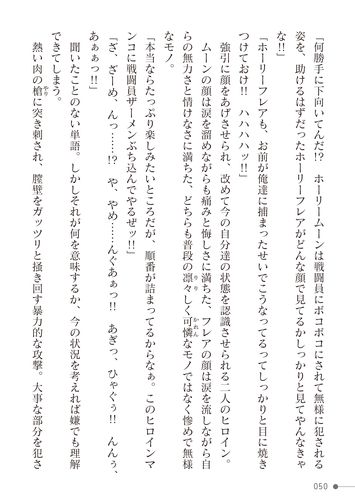 「何勝手に下向いてんだ!?　ホーリームーンは戦闘員にボコボコにされて無様に犯される
姿を、助けるはずだったホーリーフレアがどんな顔で見てるかしっかりと見てやんなきゃ
な!!」
「ホーリーフレアも、お前が俺達に捕まったせいでこうなってるってしっかりと目に焼き
つけておけ!!　ハハハハッ!!」
　強引に顔をあげさせられ、改めて今の自分達の状態を認識させられる二人のヒロイン。
　ムーンの顔は涙を溜めながらも痛みと悔しさに満ちた、フレアの顔は涙を流しながら自
らの無力さと情けなさに満ちた、どちらも普段の凛々しく可憐なモノではなく惨めで無様
なモノ。
「本当ならたっぷり楽しみたいところだが、順番が詰まってるからなぁ。このヒロインマ
ンコに戦闘員ザーメンぶち込んでやるぜッ!!」
「ざ、ざーめ、んっ……!?　や、やめ……んぐあぁっ!!　あぎっ、ひゃぐぅ!!　んんぅ、
あぁぁっ!!」
　聞いたことのない単語。しかしそれが何を意味するか、今の状況を考えれば嫌でも理解
できてしまう。
　熱い肉の槍に突き刺され、膣壁をガッツリと掻き回す暴力的な攻撃。大事な部分を犯さ
050